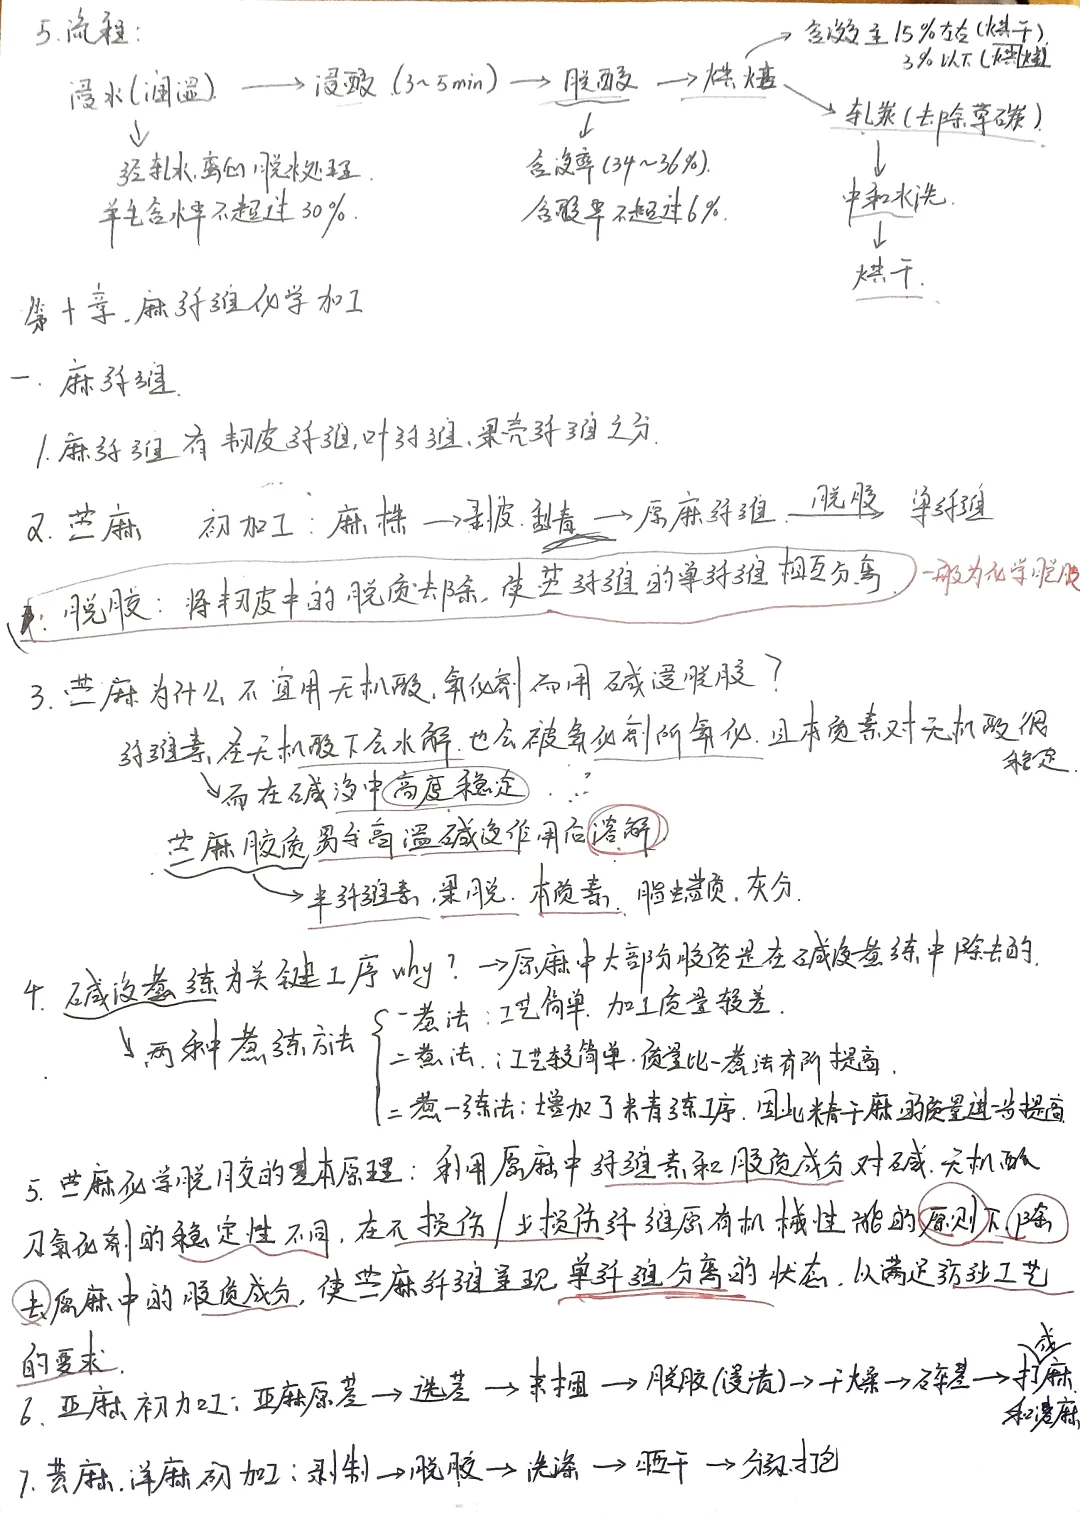 5.流程:
浸水(润湿) → 浸酸(3~5min) → 脱酸 → 烘焙 → 含液至15%左右(烘干)
3%以下(烘焙)
轧炭(去除草碳)
经轧水,离心脱水处理
羊毛含水率不超过30%.
含液率(34~36%).
含酸率不超过6%.
中和水洗.
烘干.
第十章.麻纤维化学加工
一.麻纤维
1.麻纤维有韧皮纤维,叶纤维,果壳纤维之分.
2.苎麻 初加工:麻株→剥皮.刮青→原麻纤维 脱胶→ 单纤维
脱胶:将韧皮中的胶质去除,使苎纤维的单纤维相互分离 一般为化学脱胶
3.苎麻为什么不宜用无机酸,氧化剂而用碱液脱胶?
纤维素在无机酸下会水解.也会被氧化剂所氧化.且木质素对无机酸很
稳定.
而在碱液中高度稳定 ∵
苎麻胶质易于高温碱液作用后溶解
→半纤维素,果胶.木质素.脂蜡质,灰分.
4.碱液煮练为关键工序why?→原麻中大部份胶质是在碱液煮练中除去的.
两种煮练方法 一煮法:工艺简单.加工质量较差.
二煮法:工艺较简单.质量比一煮法有所提高.
二煮一练法:增加了末青练工序.因此精干麻的质量进一步提高
5.苎麻化学脱胶的基本原理:利用原麻中纤维素和胶质成分对碱.无机酸
及氧化剂的稳定性不同,在不损伤/少损伤纤维原有机械性能的原则下,除
去原麻中的胶质成分,使苎麻纤维呈现单纤维分离的状态,以满足纺纱工艺
的要求.
或
6.亚麻初加工:亚麻原茎→选茎→束捆→脱胶(浸渍)→干燥→碎茎→打麻
和
7.黄麻.洋麻初加工:剥制→脱胶→洗涤→晒干→分级打包